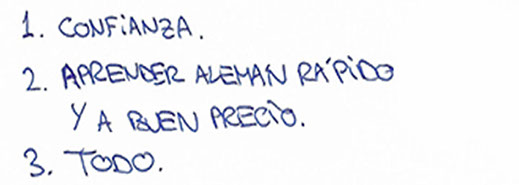 1. CONFIANZA.
2. APRENDER ALEMAN RÁPIDO
Y A BUEN PRECIO.
3. TODO.